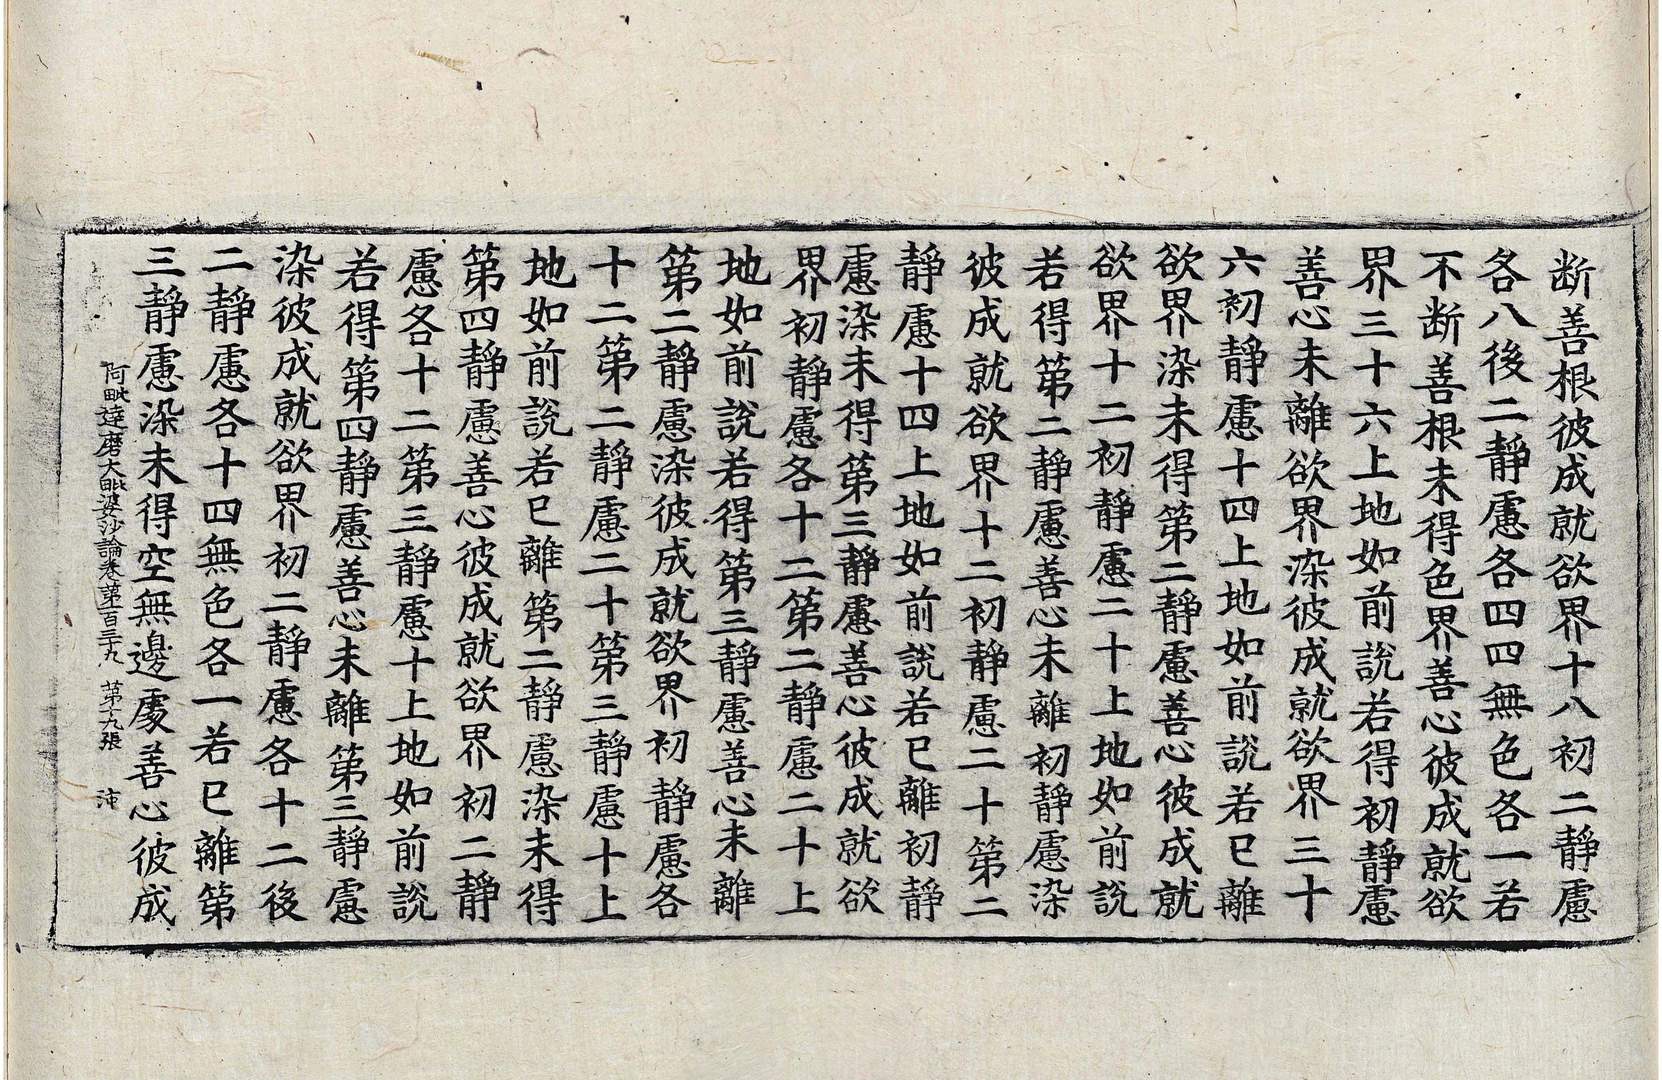 断善根彼成就欲界十八初二靜慮
各八後二靜慮各四四無色各一若
不断善根未得色界善心彼成就欲
界三十六上地如前說若得初靜慮
善心未離欲界染彼成就欲界三十
六初靜慮十四上地如前說若已離
欲界染未得第二靜慮善心彼成就
欲界十二初靜慮二十上地如前說
若得第二靜慮善心未離初靜慮染
彼成就欲界十二初靜慮二十第二
靜慮十四上地如前說若已離初靜
慮染未得第三靜慮善心彼成就欲
界初靜慮各十二第二靜慮二十上
地如前說若得第三靜慮善心未離
第二靜慮染彼成就欲界初靜慮各
十二第二靜慮二十第三靜慮十上
地如前說若已離第二靜慮染未得
第四靜慮善心彼成就欲界初二靜
慮各十二第三靜慮十上地如前說
若得第四靜慮善心未離第三靜慮
染彼成就欲界初二靜慮各十二後
二靜慮各十四無色各一若已離第
三靜慮染未得空無邊處善心彼成
阿毗達磨大毗婆沙論卷第百三十九 第十九張